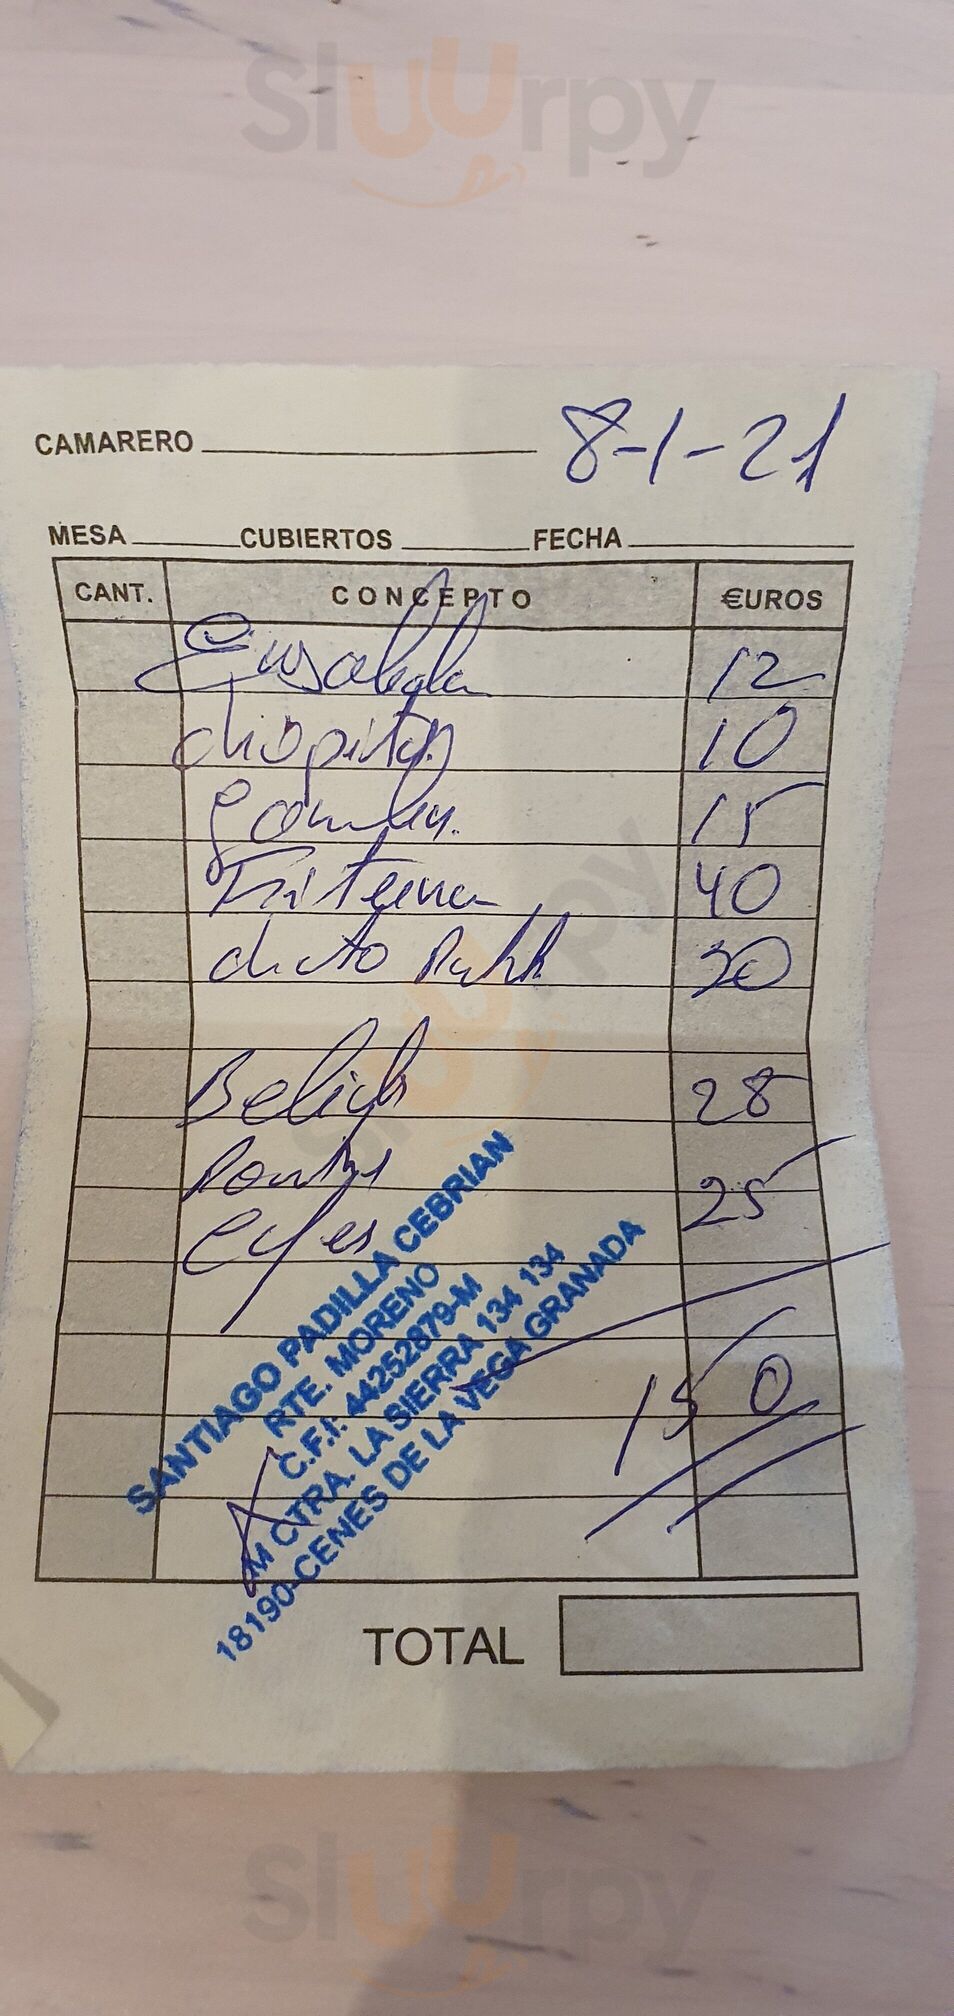 Sluurpy
8-1-21
CAMARERO
MESA CUBIERTOS FECHA
CANT. CONCEPTO €UROS
Ensalada 12
chopitos 10
Gambas. 15
40
chuto 20
Bebida 28
Postres 25
cafes
150
SANTIAGO PADILLA CEBRIAN
RTE. MORENO
C.F.I. 44252879-M
M CTRA. LA SIERRA 134 134
18190-CENES DE LA VEGA GRANADA
TOTAL
Sluurpy